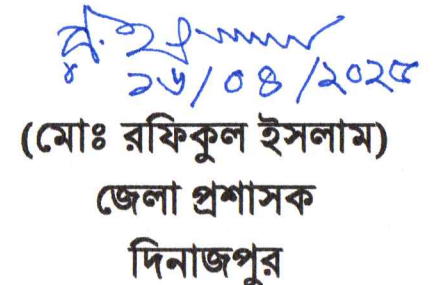 ১৬/০৪/২০২৫
(মোঃ রফিকুল ইসলাম)
জেলা প্রশাসক
দিনাজপুর